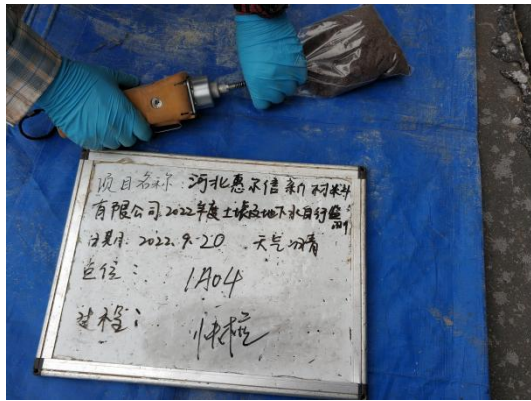 项目名称:河北惠尔信新材料
有限公司2022年度土壤及地下水自行监测
日期:2022.9.20 天气:晴
点位: 1A04
过程: 快检